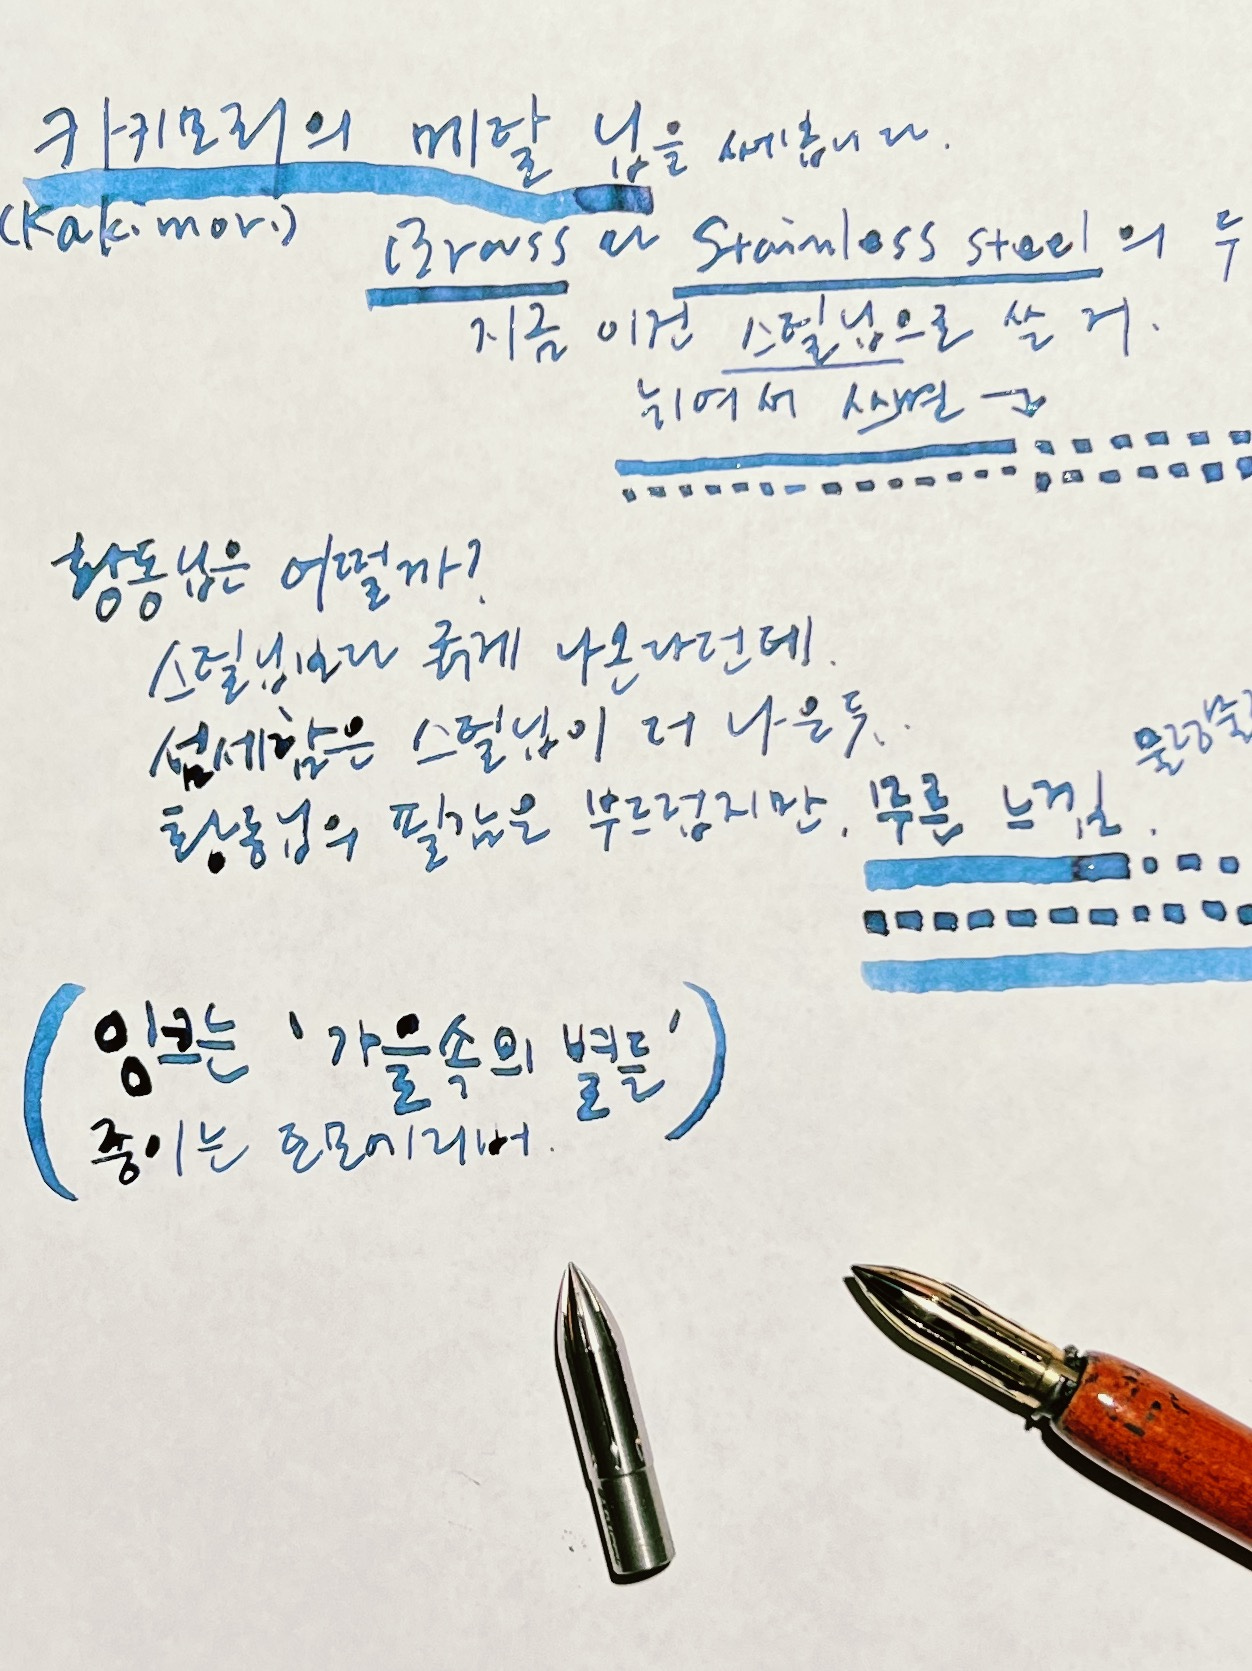 카키모리의 메탈 닙을 써봅니다.
(Kakimori)
Brass 와 Stainless steel의 두
지금 이건 스틸닙으로 쓴 거.
뉘어서 쓰면 →
황동닙은 어떨까?
스틸닙보다 굵게 나온라던데.
섬세함은 스틸닙이 더 나은듯.
황동닙의 필감은 부드럽지만, 무른 느낌.
물렁물렁
(잉크는 '가을속의 별들')
종이는 토모에리버.